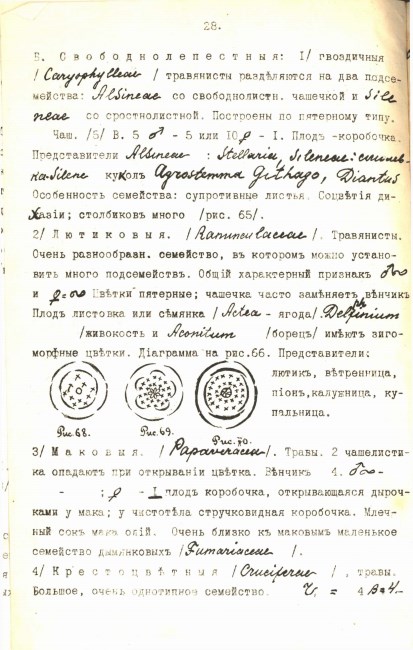 28.
Б. Свободнолепестныя: I/ гвоздичныя
/Caryophylleae/ травянисты раздѣляются на два подсе-
мейства: Alsineae со свободнолистн. чашечкой и Sile
neae со сростнолистной. Построены по пятерному типу.
Чаш. /5/ В. 5 ♂ - 5 или 10 ♀ - I. Плодъ -коробочка.
Представители Alsineae : Stellaria, Sileneae:
ка-Silene куколь Agrostemma Githago, Diantus
Особенность семейства: супротивные листья. Соцвѣтія ди-
хазіи; столбиковъ много /рис. 65/.
2/ Лютиковыя. /Ranunculaceae/. Травянисты.
Очень разнообразн. семейство, въ которомъ можно устано-
вить много подсемействъ. Общій характерный признакъ ♂∞
и ♀=∞ Цвѣтки пятерные; чашечка часто замѣняетъ вѣнчикъ
Плодъ листовка или сѣмянка /Actea - ягода/ Delphinium
/живокость и Aconitum /борец/ имѣютъ зиго-
морфные цвѣтки. Діаграмма на рис.66. Представители:
лютикъ, вѣтренница,
піонъ,калужница, ку-
пальница.
Рис.68. Рис.69. Рис.70.
3/ Маковыя. /Papaveraceae/. Травы. 2 чашелисти-
ка опадаютъ при открываніи цвѣтка. Вѣнчикъ 4. ♂∞-
- ; ♀ - I плодъ коробочка, открывающаяся дыроч-
ками у мака; у чистотѣла стручковидная коробочка. Млеч-
ный сокъ мака опій. Очень близко къ маковымъ маленькое
семейство дымянковыхъ /Fumariaceae /.
4/ Крестоцвѣтныя /Cruciferae /, травы.
Большое, очень однотипное семейство. Ч. = 4 В=4-